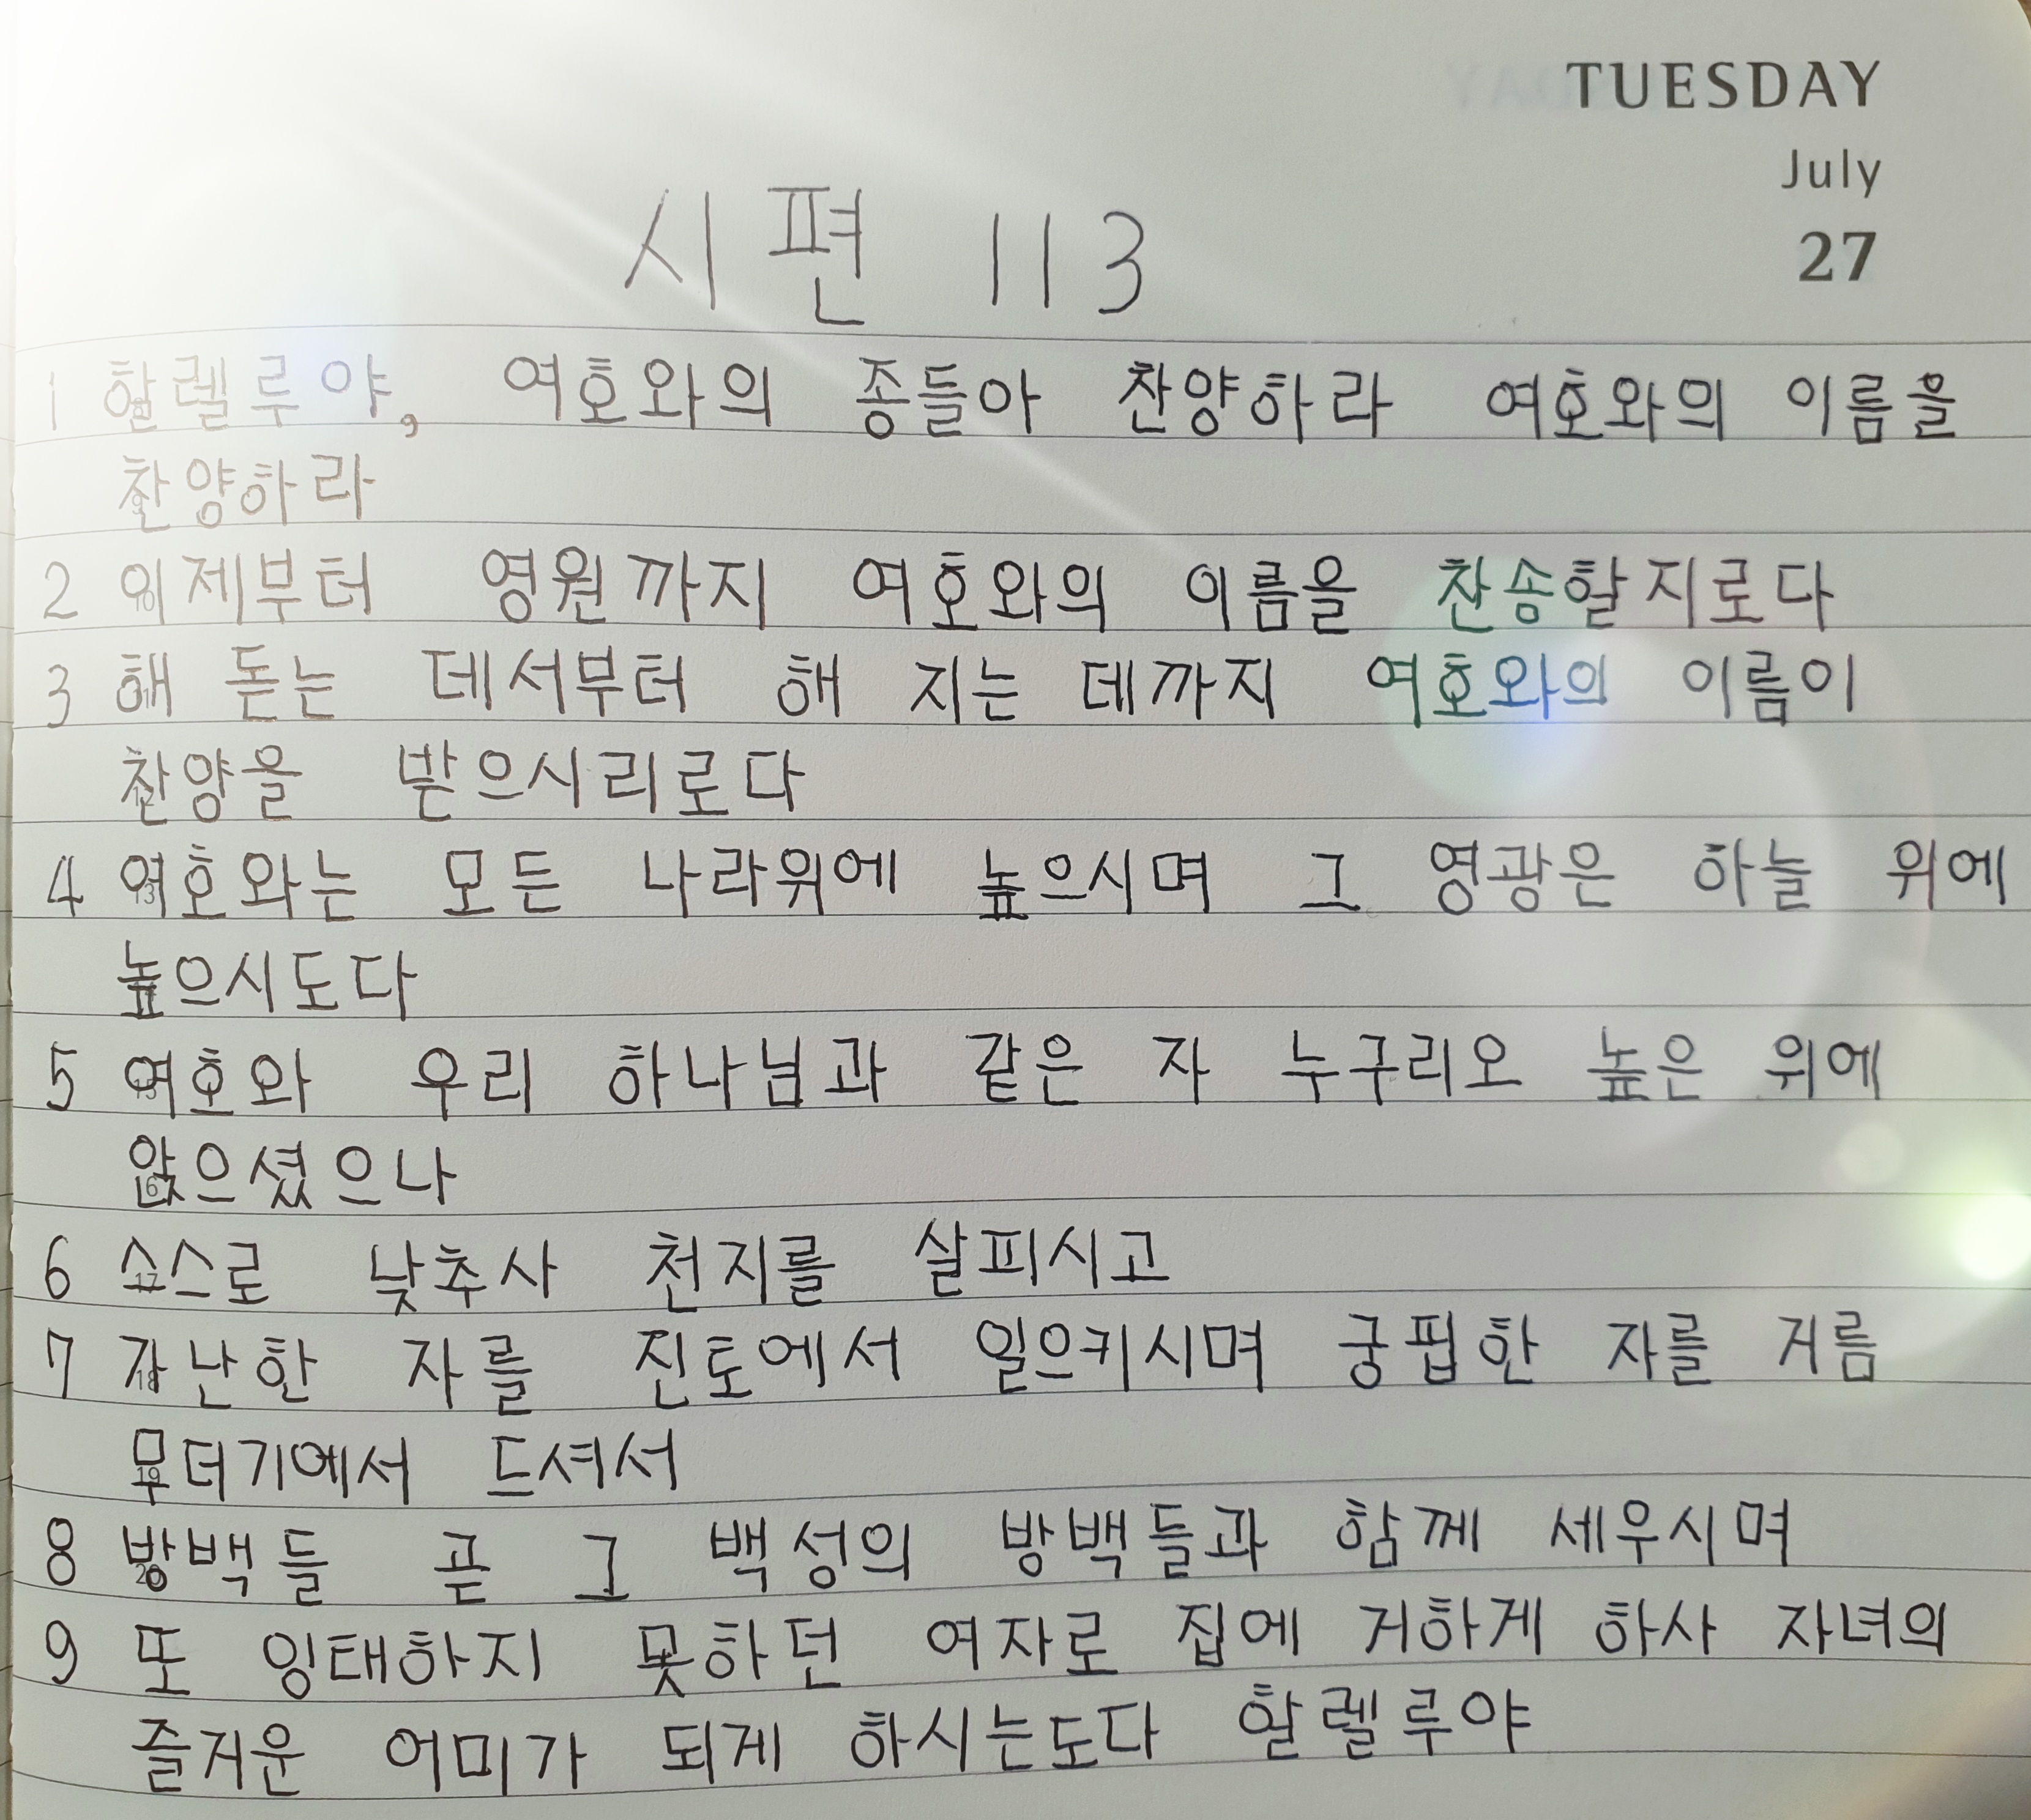 TUESDAY
July
27
시편 113
1 할렐루야, 여호와의 종들아 찬양하라 여호와의 이름을
찬양하라
2 이제부터 영원까지 여호와의 이름을 찬송할지로다
3 해 돋는 데서부터 해 지는 데까지 여호와의 이름이
찬양을 받으시리로다
4 여호와는 모든 나라위에 높으시며 그 영광은 하늘 위에
높으시도다
5 여호와 우리 하나님과 같은 자 누구리오 높은 위에
앉으셨으나
6 스스로 낮추사 천지를 살피시고
7 가난한 자를 진토에서 일으키시며 궁핍한 자를 거름
무더기에서 드셔서
8 방백들 곧 그 백성의 방백들과 함께 세우시며
9 또 잉태하지 못하던 여자로 집에 거하게 하사 자녀의
즐거운 어미가 되게 하시는도다 할렐루야